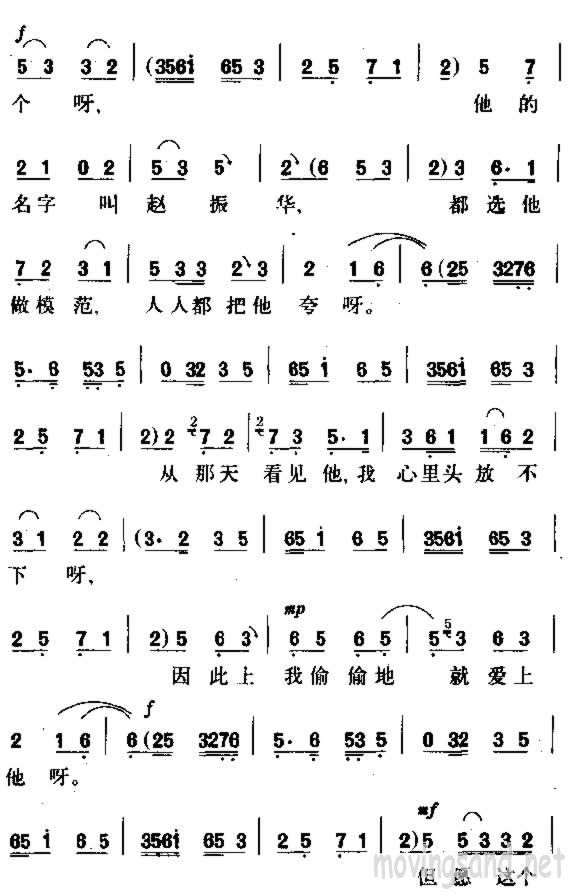 f
5 3 3 2 | (3561 65 3 | 2 5 7 1 | 2) 5 7 |
个 呀, 他 的
2 1 0 2 | 5 3 5 | 2 (6 5 3 | 2) 3 6· 1 |
名字 叫 赵 振 华, 都 选 他
7 2 3 1 | 5 3 3 2 3 | 2 1 6 | 6 (25 3276 |
做 模 范, 人 人 都 把 他 夸 呀。
5· 6 53 5 | 0 32 3 5 | 65 1 6 5 | 3561 65 3 |
2 5 7 1 | 2) 2 2 7 2 | 2 7 3 5· 1 | 3 6 1 1 6 2 |
从 那 天 看 见 他, 我 心 里 头 放 不
3 1 2 2 | (3· 2 3 5 | 65 1 6 5 | 3561 65 3 |
下 呀,
mp
2 5 7 1 | 2) 5 6 3 | 6 5 6 5 | 5 5 3 6 3 |
因 此 上 我 偷 偷 地 就 爱 上
f
2 1 6 | 6 (25 3276 | 5· 6 53 5 | 0 32 3 5 |
他 呀。
mf
65 1 6 5 | 3561 65 3 | 2 5 7 1 | 2) 5 5 3 3 2 |
但 愿 这 个
movingsand.net